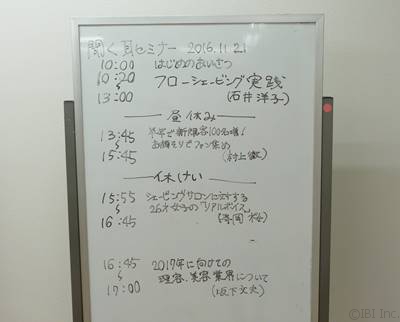 聞く耳セミナー 2016.11.21
10:00 はじめのあいさつ
10:20
〜 フローシェービング実践
13:00 (石井洋子)
昼休み
13:45 半年で新規客100名増!
〜 お顔そりでファン集め
15:45 (村上徹)
休けい
15:55 シェービングサロンに対する
〜 26才女子の「リアルボイス」
16:45
16:45 2017年に向けての
〜 理容、美容業界について
17:00 (坂下文夫)
©IBI Inc.